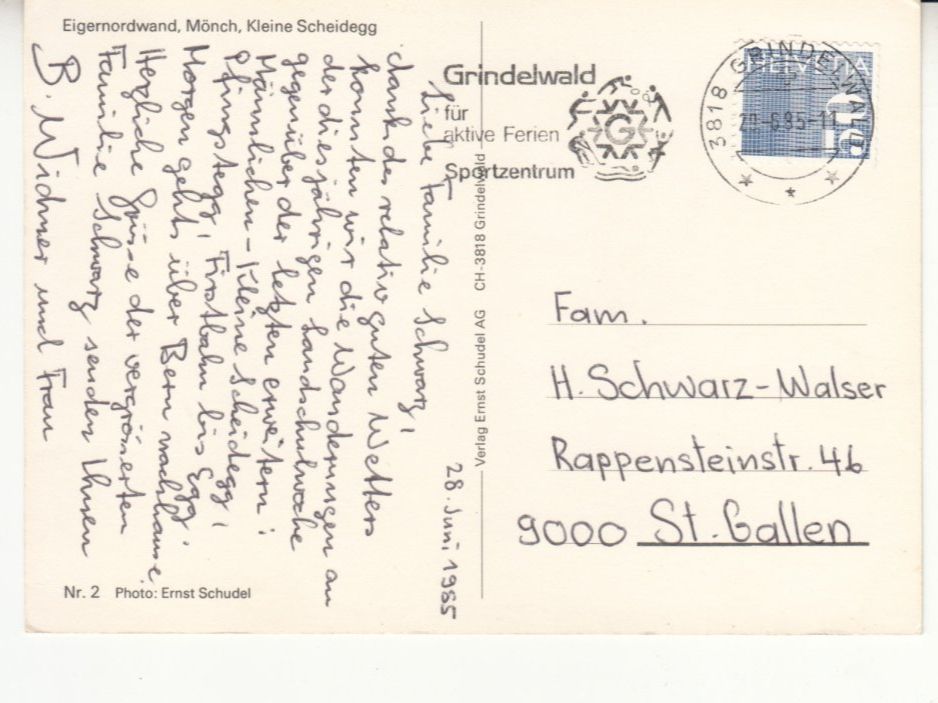 Eigernordwand, Mönch, Kleine Scheidegg
28. Juni 1985
Liebe Familie Schwarz,
dank des relativ guten Wetters
konnten wir die Wanderungen an
der diesjährigen Landschulwoche
gegenüber der letzten erweitern:
Männlichen – Kleine Scheidegg,
Pfingstegg, Firstbahn bis Egg.
Morgen gehts über Bern nachhause.
Herzliche Grüsse der vergrösserten
Familie Schwarz senden Ihnen
B. Widmer und Frau
Nr. 2 Photo: Ernst Schudel
Verlag Ernst Schudel AG CH-3818 Grindelwald
Grindelwald
für
aktive Ferien
Sportzentrum
G
3818 GRINDELWALD
HELVETIA
Fam.
H. Schwarz-Walser
Rappensteinstr. 46
9000 St. Gallen